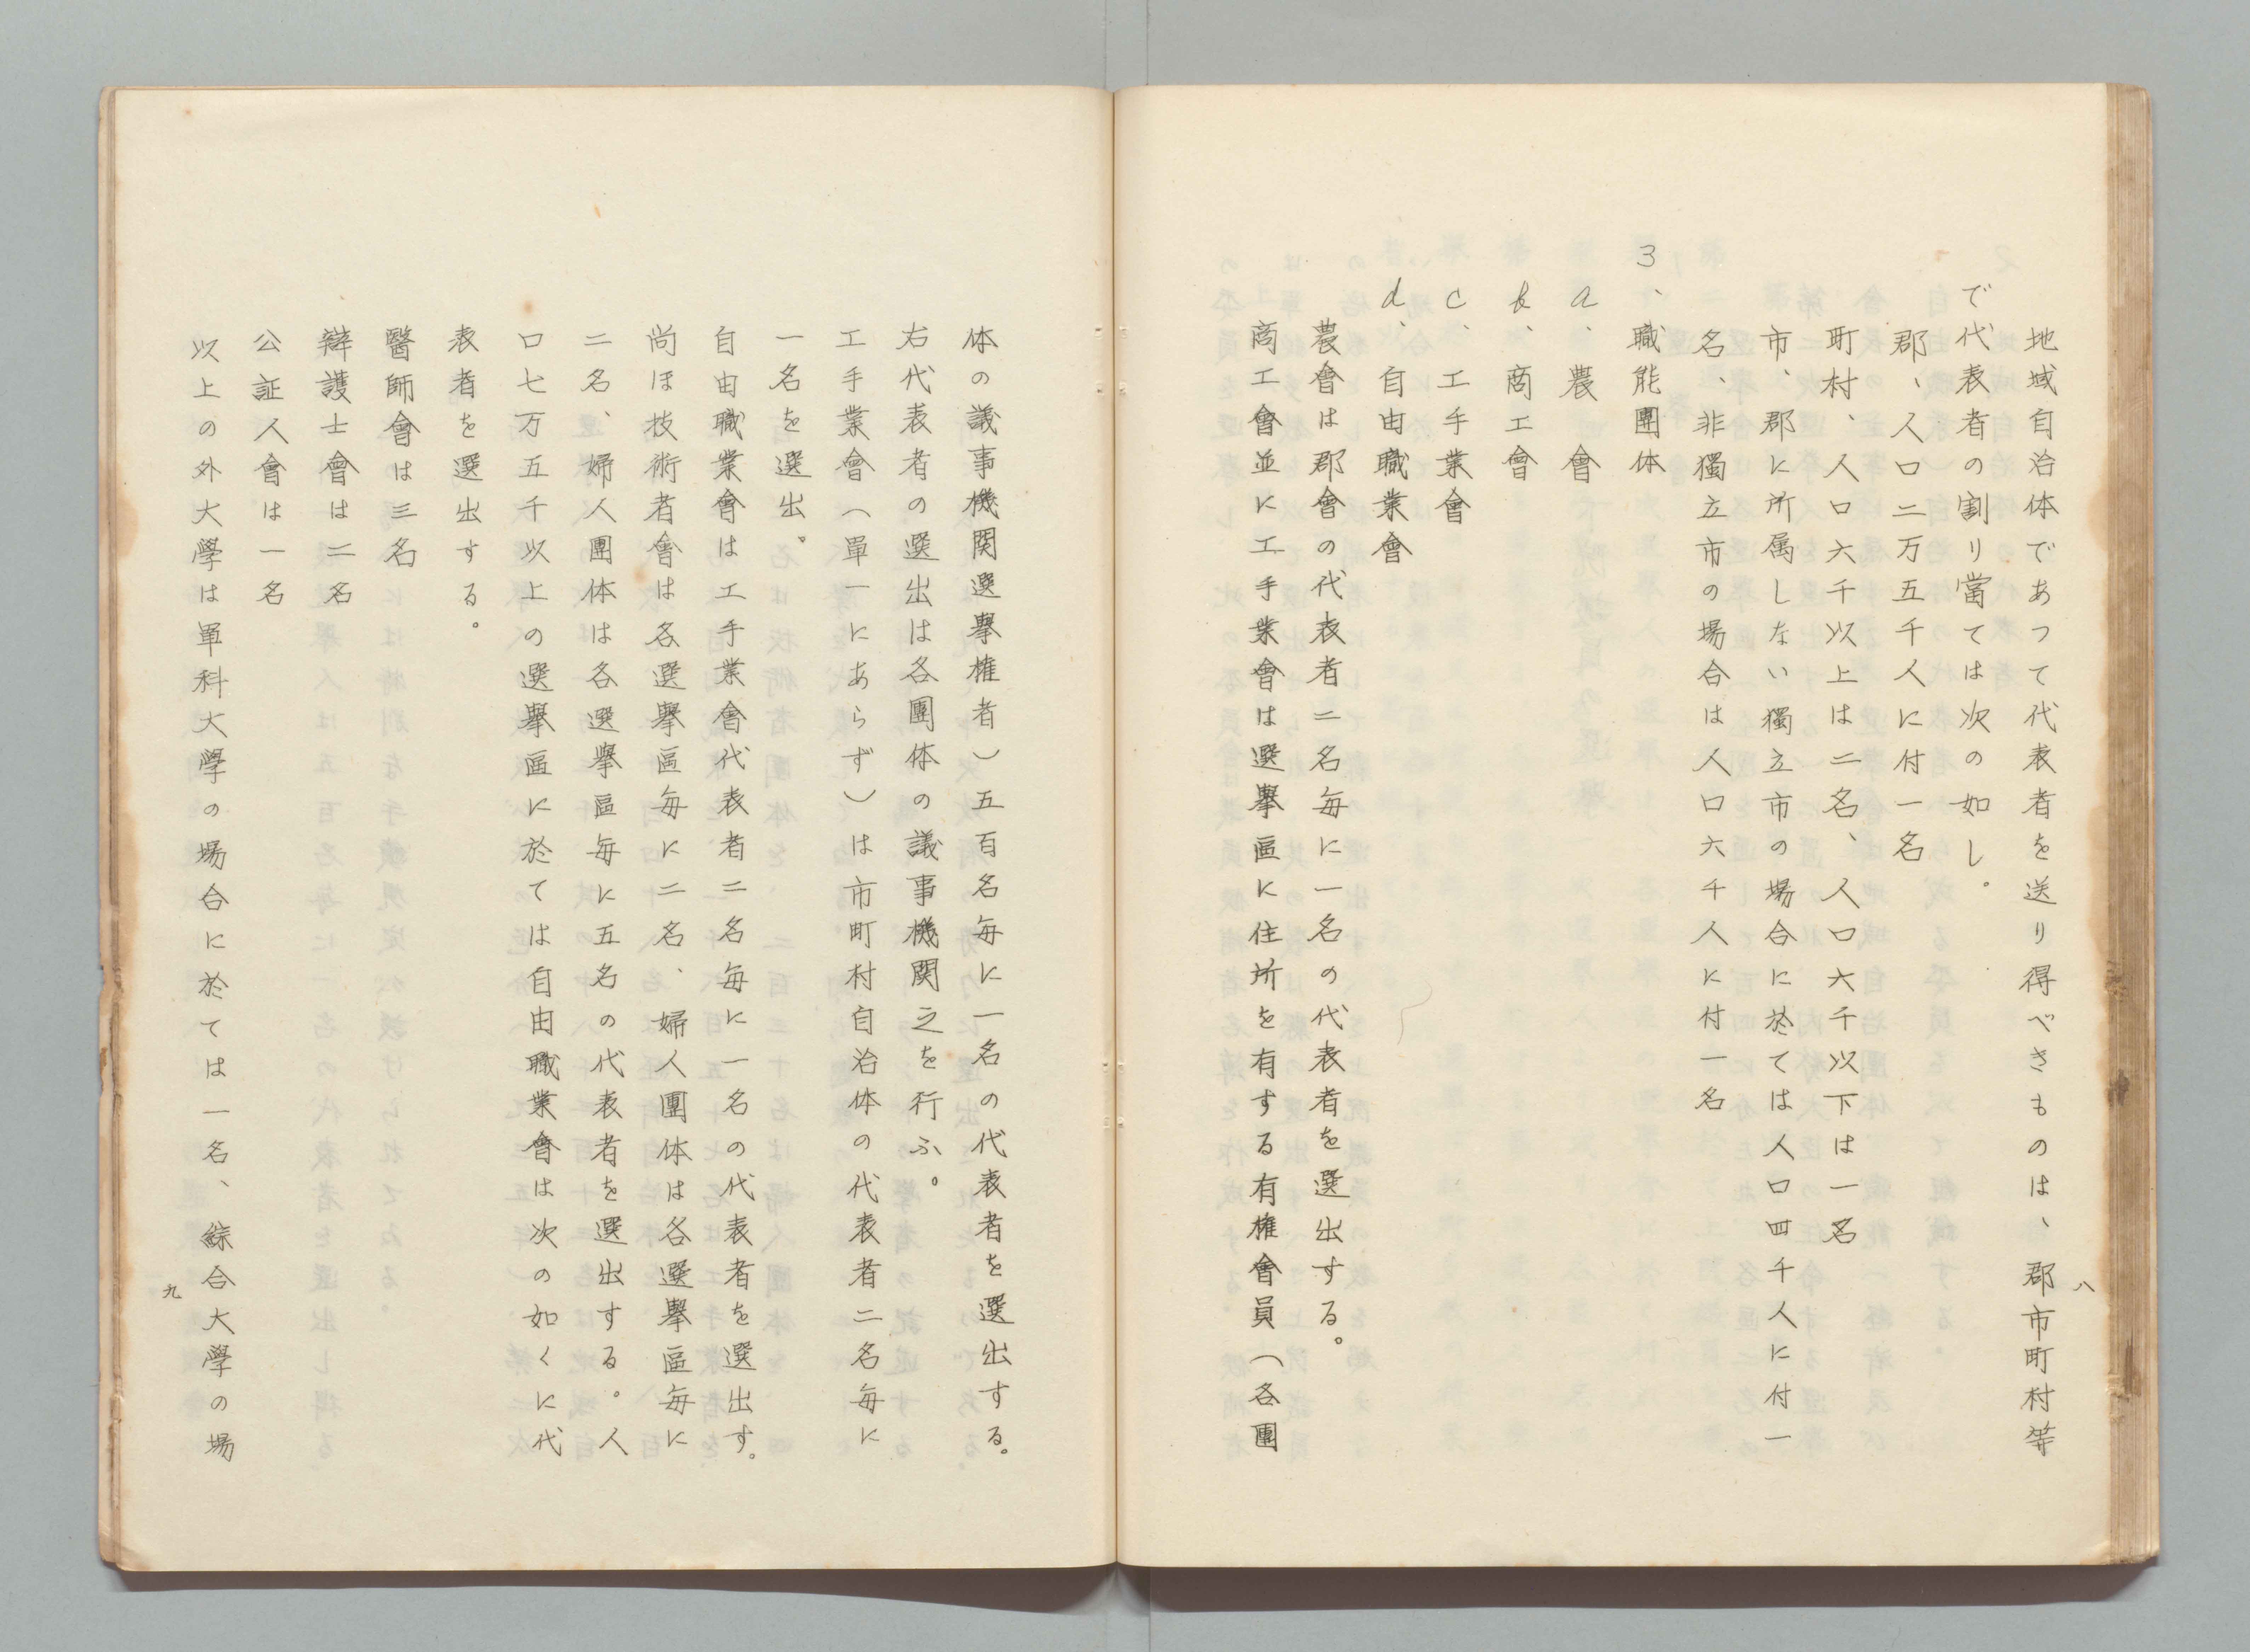 地域自治体であつて代表者を送り得べきものは、郡市町村等
で代表者の割り當ては次の如し。
郡、人口二万五千人に付一名
町村、人口六千以上は二名、人口六千以下は一名
市、郡に所属しない獨立市の場合に於ては人口四千人に付一
名、非獨立市の場合は人口六千人に付一名
3、職能團体
a、農會
b、商工會
c、工手業會
d、自由職業會
農會は郡會の代表者二名毎に一名の代表者を選出する。
商工會並に工手業會は選擧區に住所を有する有権會員（各團
八
体の議事機関選擧権者）五百名毎に一名の代表者を選出する。
右代表者の選出は各團体の議事機関之を行ふ。
工手業會（單一にあらず）は市町村自治体の代表者二名毎に
一名を選出。
自由職業會は工手業會代表者二名毎に一名の代表者を選出す。
尚ほ技術者會は各選擧區毎に二名、婦人團体は各選擧區毎に
二名、婦人團体は各選擧區毎に五名の代表者を選出する。人
口七万五千以上の選擧區に於ては自由職業會は次の如くに代
表者を選出する。
醫師會は三名
辯護士會は二名
公証人會は一名
以上の外大學は單科大學の場合に於ては一名、綜合大學の場
九